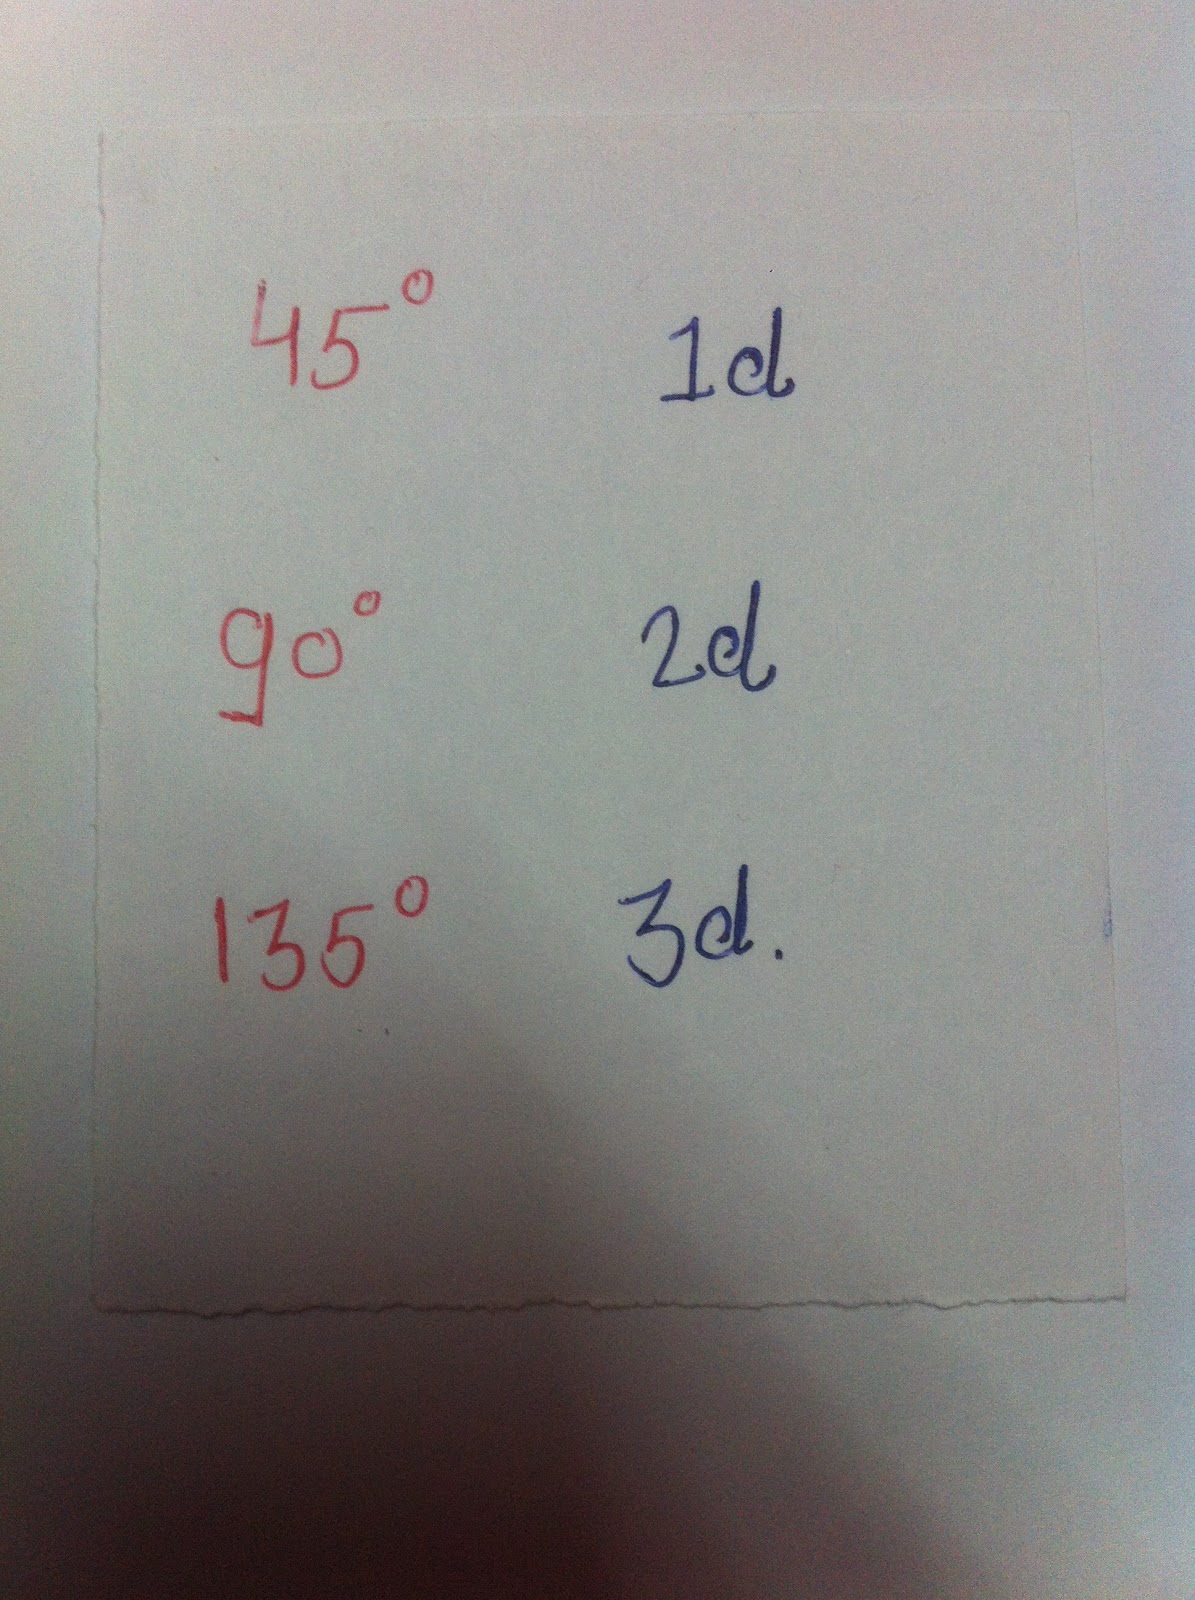 45° 1d
90° 2d
135° 3d.